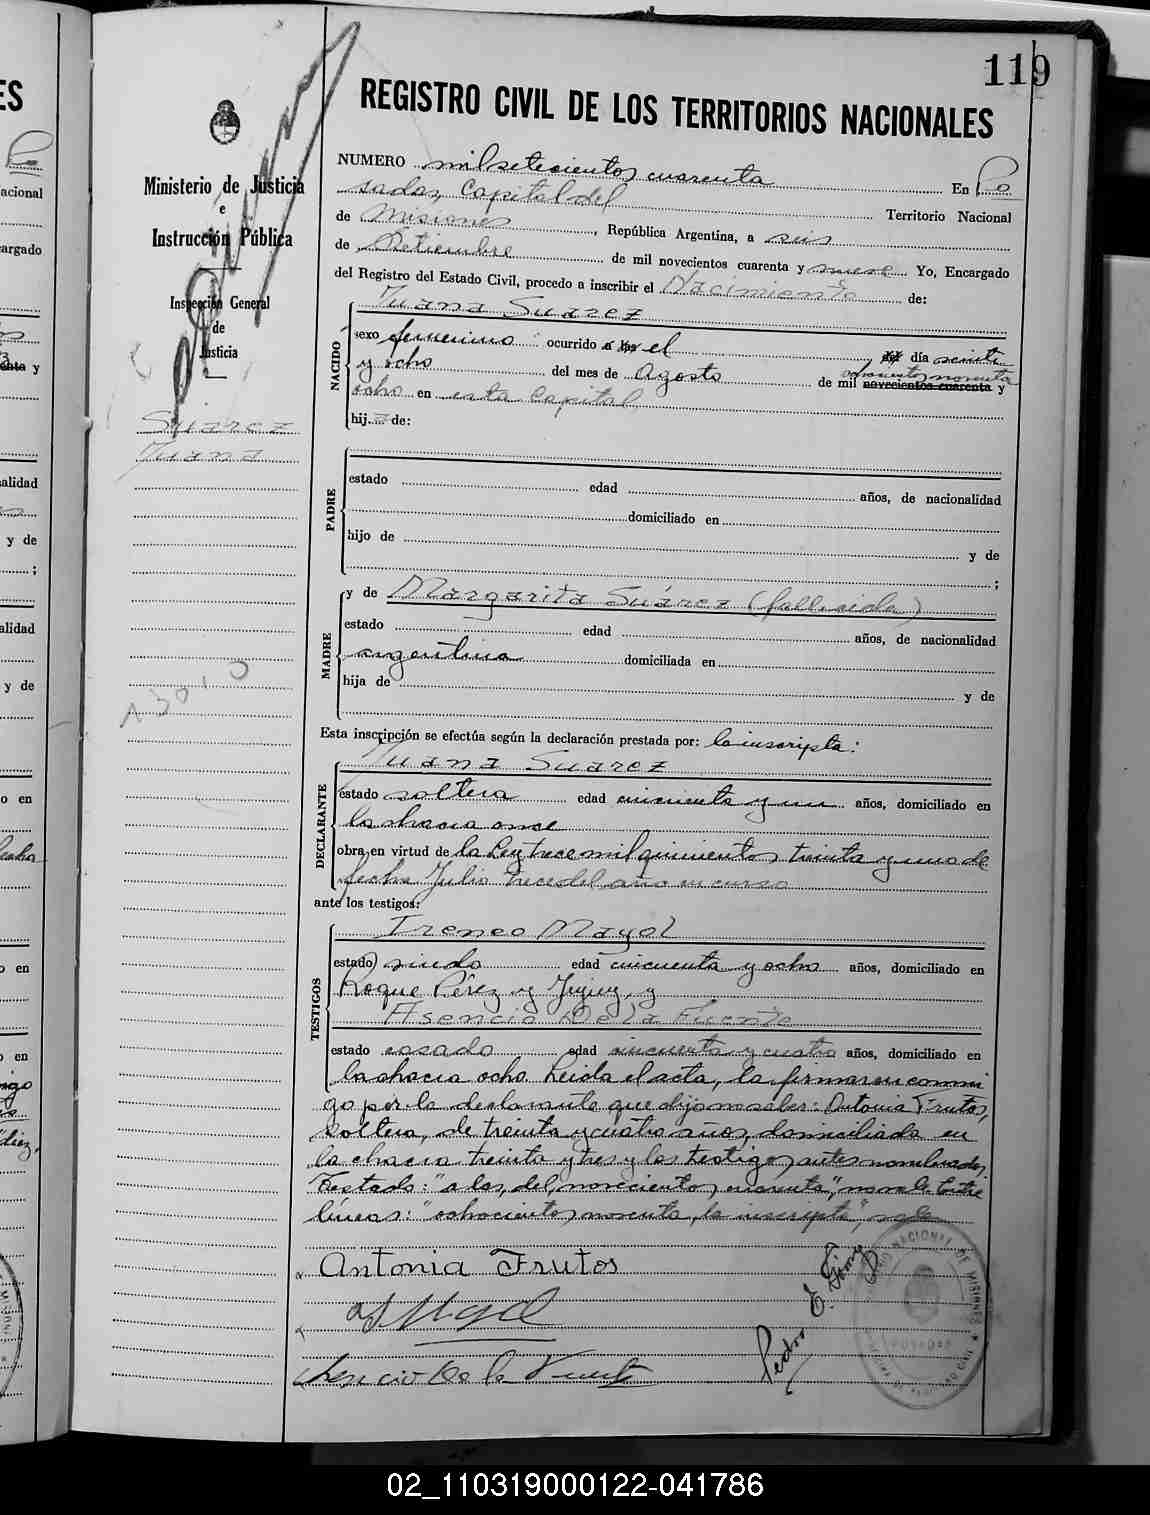 119
REGISTRO CIVIL DE LOS TERRITORIOS NACIONALES
Ministerio de Justicia
e
Instrucción Pública
Inspección General
de
Justicia
Suarez
Juana
NUMERO mil setecientos cuarenta En Po
sadas, Capital del Territorio Nacional
de Misiones, República Argentina, a seis
de Setiembre de mil novecientos cuarenta y nueve Yo, Encargado
del Registro del Estado Civil, procedo a inscribir el Nacimiento de:
Juana Suarez
NACIDO
sexo femenino ocurrido a las el del día veinti
ochocientos noventa
y ocho del mes de Agosto de mil novecientos cuarenta y
ocho en esta Capital,
hij de:
PADRE
estado edad años, de nacionalidad
domiciliado en
hijo de y de
;
MADRE
y de Margarita Suárez (fallecida)
estado edad años, de nacionalidad
argentina domiciliada en
hija de y de
Esta inscripción se efectúa según la declaración prestada por: la inscripta:
DECLARANTE
Juana Suarez
estado soltera edad cincuenta y un años, domiciliado en
la chacra once
obra en virtud de la Ley trece mil quinientos treinta y uno de
fecha Julio trece del año en curso
ante los testigos:
TESTIGOS
Ireneo Mayol
estado viudo edad cincuenta y ocho años, domiciliado en
Roque Pérez y Jujuy, y
Asencio De la Fuente
estado casado edad cincuenta y cuatro años, domiciliado en
la chacra ocho. Leida el acta, la firmaron conmi
go por la declarante que dijo no saber: Antonia Frutos,
soltera, de treinta y cuatro años, domiciliada en
la chacra treinta y tres y los testigos antes nombrados,
Testado: "a las, del, novecientos cuarenta", no vale. Entre
líneas: "ochocientos noventa, la inscripta", vale
Antonia Frutos
Asencio De la Fuente
Pedro E.
02_110319000122-041786